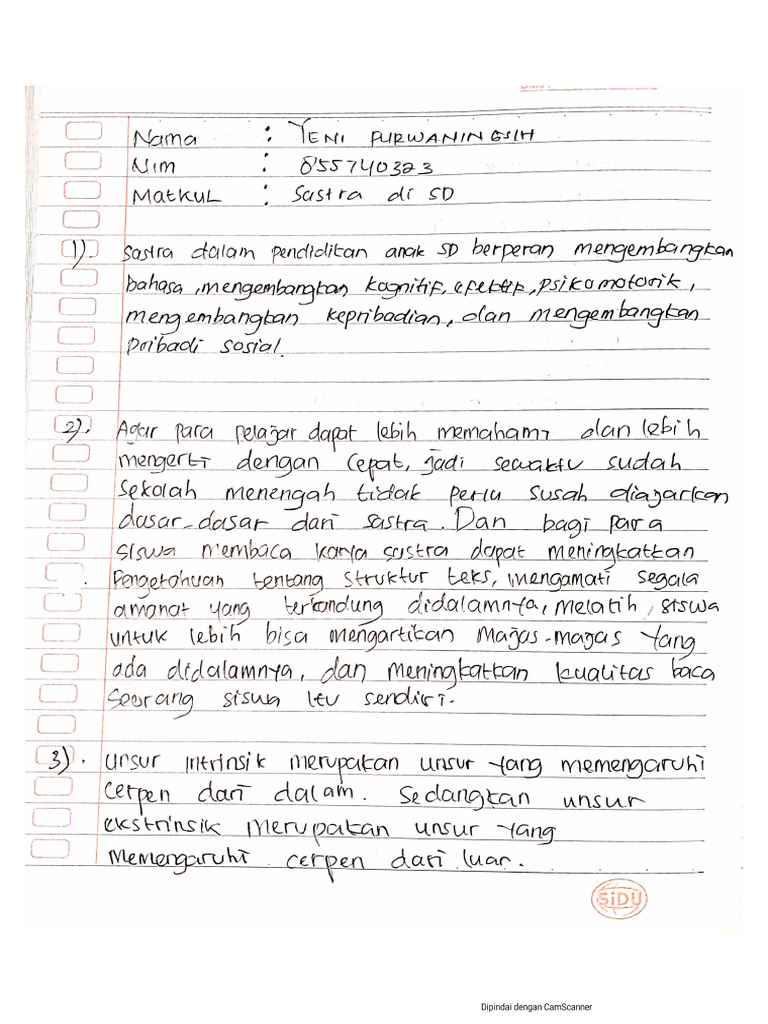 Nama : YENI PURWANINGSIH
Nim : 855740323
Matkul : Sastra di SD
1) Sastra dalam pendiditan anak SD berperan mengembangkan
bahasa, mengembangkan kognitif, efektif, psikomotorik,
mengembangkan kepribadian, dan mengembangkan
pribadi sosial.
2). Agar para pelajar dapat lebih memahami dan lebih
mengerti dengan cepat, jadi sewaktu sudah
sekolah menengah tidak perlu susah diajarkan
dasar-dasar dari sastra. Dan bagi para
siswa membaca karya sastra dapat meningkatkan
Pengetahuan tentang struktur teks, mengamati segala
amanat yang terkandung didalamnya, melatih, siswa
untuk lebih bisa mengartikan majas-majas yang
ada didalamnya, dan meningkatkan kualitas baca
seorang siswa itu sendiri.
3). Unsur intrinsik merupakan unsur yang memengaruhi
cerpen dari dalam. Sedangkan unsur
ekstrinsik merupakan unsur yang
memengaruhi cerpen dari luar.
SiDU
Dipindai dengan CamScanner